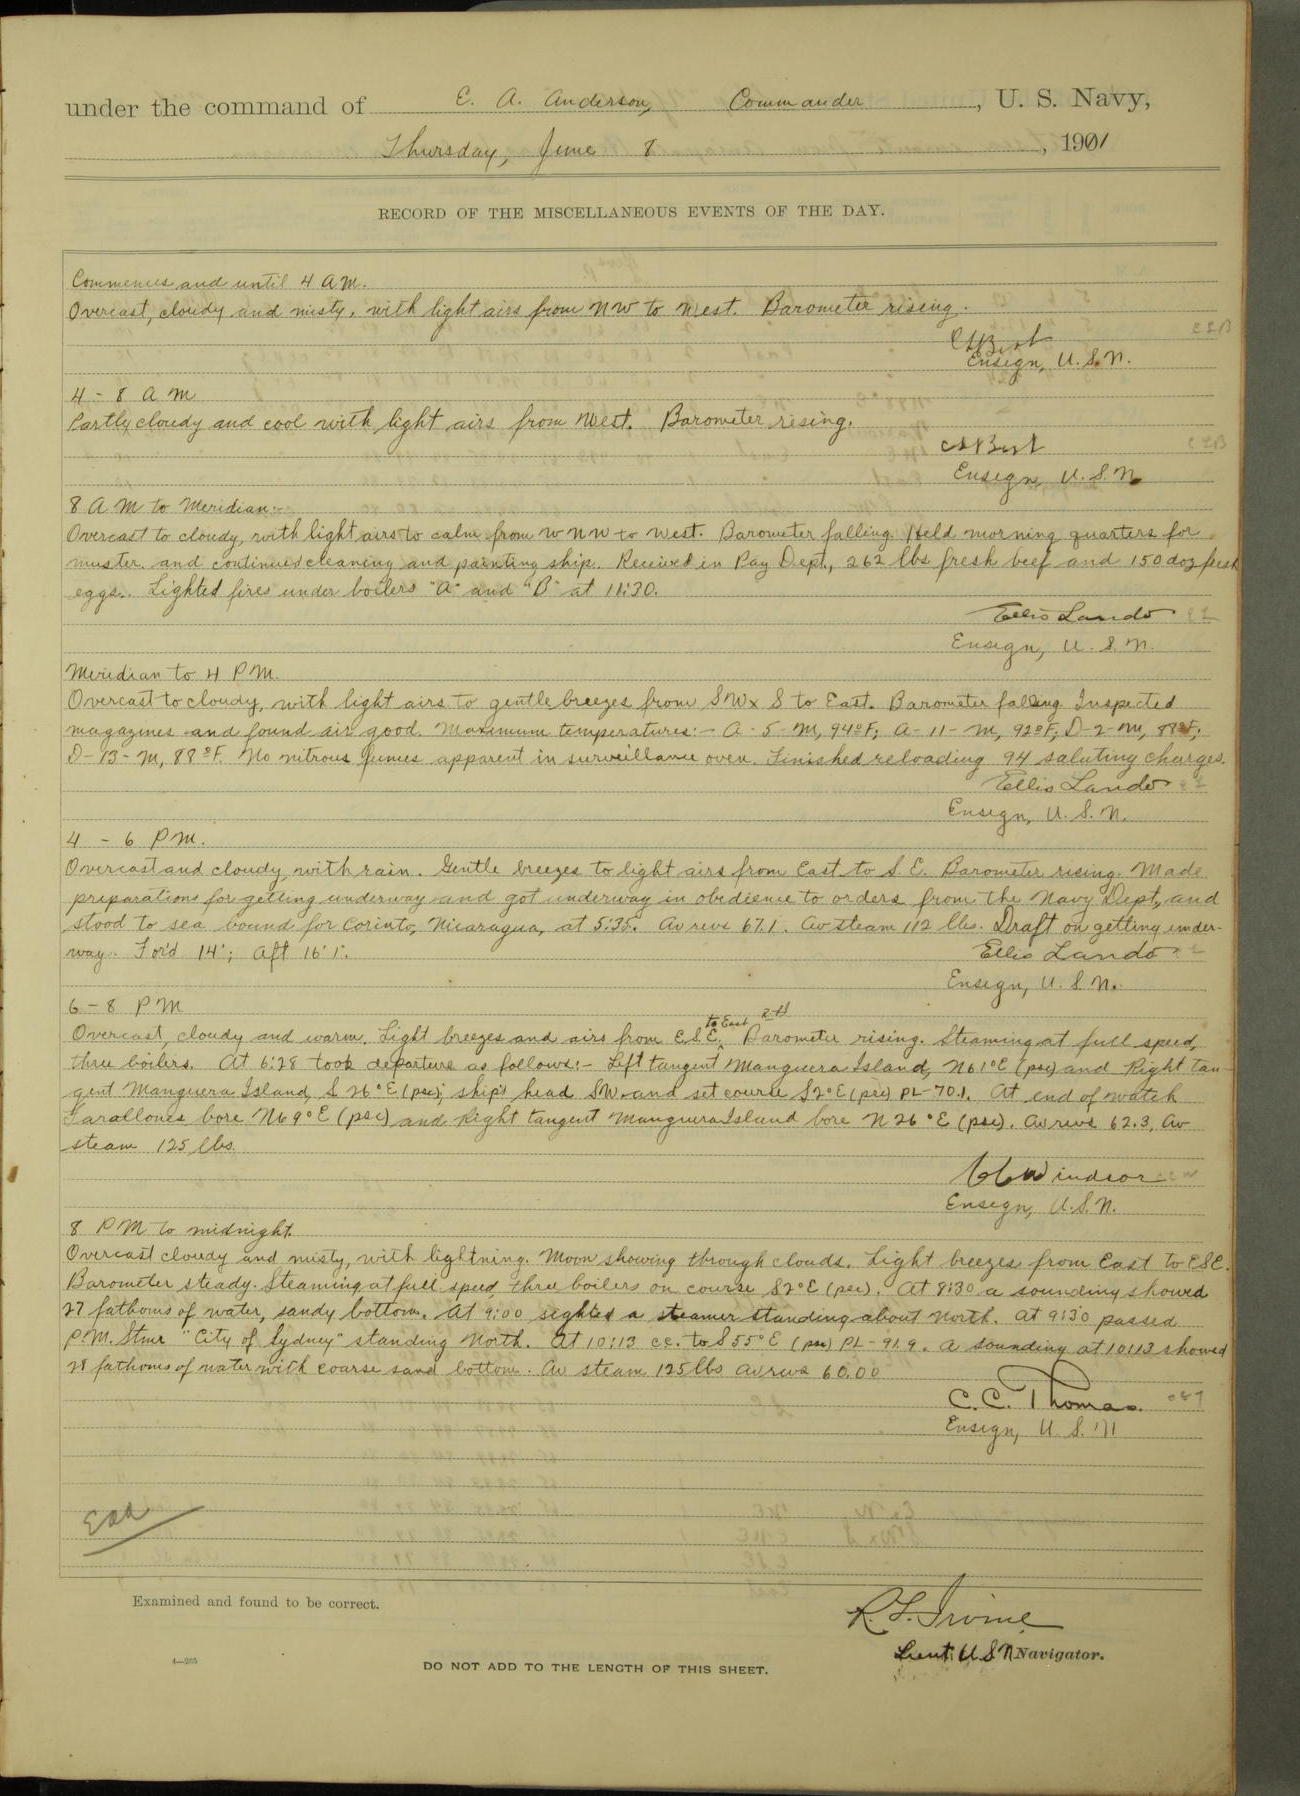 under the command of E. A. Anderson, Commander, U. S. Navy,
Thursday, June 8, 1901
RECORD OF THE MISCELLANEOUS EVENTS OF THE DAY.
Commences and until 4 A.M.
Overcast, cloudy and misty, with light airs from NW to West. Barometer rising.
Ensign, U.S.N.
4 - 8 A M
Partly cloudy and cool with light airs from West. Barometer rising.
Ensign, U.S.N.
8 A M to Meridian:-
Overcast to cloudy, with light airs to calm from W N W to West. Barometer falling. Held morning quarters for
muster and continued cleaning and painting ship. Received in Pay Dept., 262 lbs fresh beef and 150 doz fresh
eggs. Lighted fires under boilers "A" and "B" at 11:30.
Ellis Lando
Ensign, U. S. N.
Meridian to 4 P.M.
Overcast to cloudy, with light airs to gentle breezes from SWx S to East. Barometer falling. Inspected
magazines and found air good. Maximum temperatures:- A-5-M, 94°F; A-11-M, 92°F; D-2-M, 88°F;
D-13-M, 88°F. No nitrous fumes apparent in surveillance oven. Finished reloading 94 saluting charges.
Ellis Lando
Ensign, U. S. N.
4 - 6 P.M.
Overcast and cloudy with rain. Gentle breezes to light airs from East to S. E. Barometer rising. Made
preparations for getting underway and got underway in obedience to orders from the Navy Dept, and
stood to sea bound for Corinto, Nicaragua, at 5:35. Av revs 67.1. Av steam 112 lbs. Draft on getting under-
way. For'd 14'; Aft 16' 1".
Ellis Lando
Ensign, U. S. N.
6 - 8 P M
Overcast, cloudy and warm. Light breezes and airs from E.S.E. to East. Barometer rising. Steaming at full speed,
three boilers. At 6:28 took departure as follows:- Left tangent Manguera Island, N61°E (psc) and Right tan-
gent Manguera Island, S 26°E (psc); ship's head SW and set course S2°E (psc) PL-70.1. At end of watch
Farallones bore N69°E (psc) and Right tangent Manguera Island bore N 26°E (psc). Av revs 62.3, Av
steam 125 lbs.
Windsor
Ensign, U.S.N.
8 P M to midnight.
Overcast cloudy and misty, with lightning. Moon showing through clouds. Light breezes from East to ESE.
Barometer steady. Steaming at full speed, three boilers on course S2°E (psc). At 8:30 a sounding showed
27 fathoms of water, sandy bottom. At 9:00 sighted a steamer standing about North. At 9:30 passed
P.M. Stmr "City of Sydney" standing North. At 10:13 c.c. to S55°E (psc) PL-91.9. A sounding at 10:13 showed
28 fathoms of water with coarse sand bottom. Av steam 125 lbs Av revs 60.00
C. C. Thomas.
Ensign, U. S. N
EAA
Examined and found to be correct.
R. L. Irvine
Lieut. U.S.N Navigator.
4—265
DO NOT ADD TO THE LENGTH OF THIS SHEET.